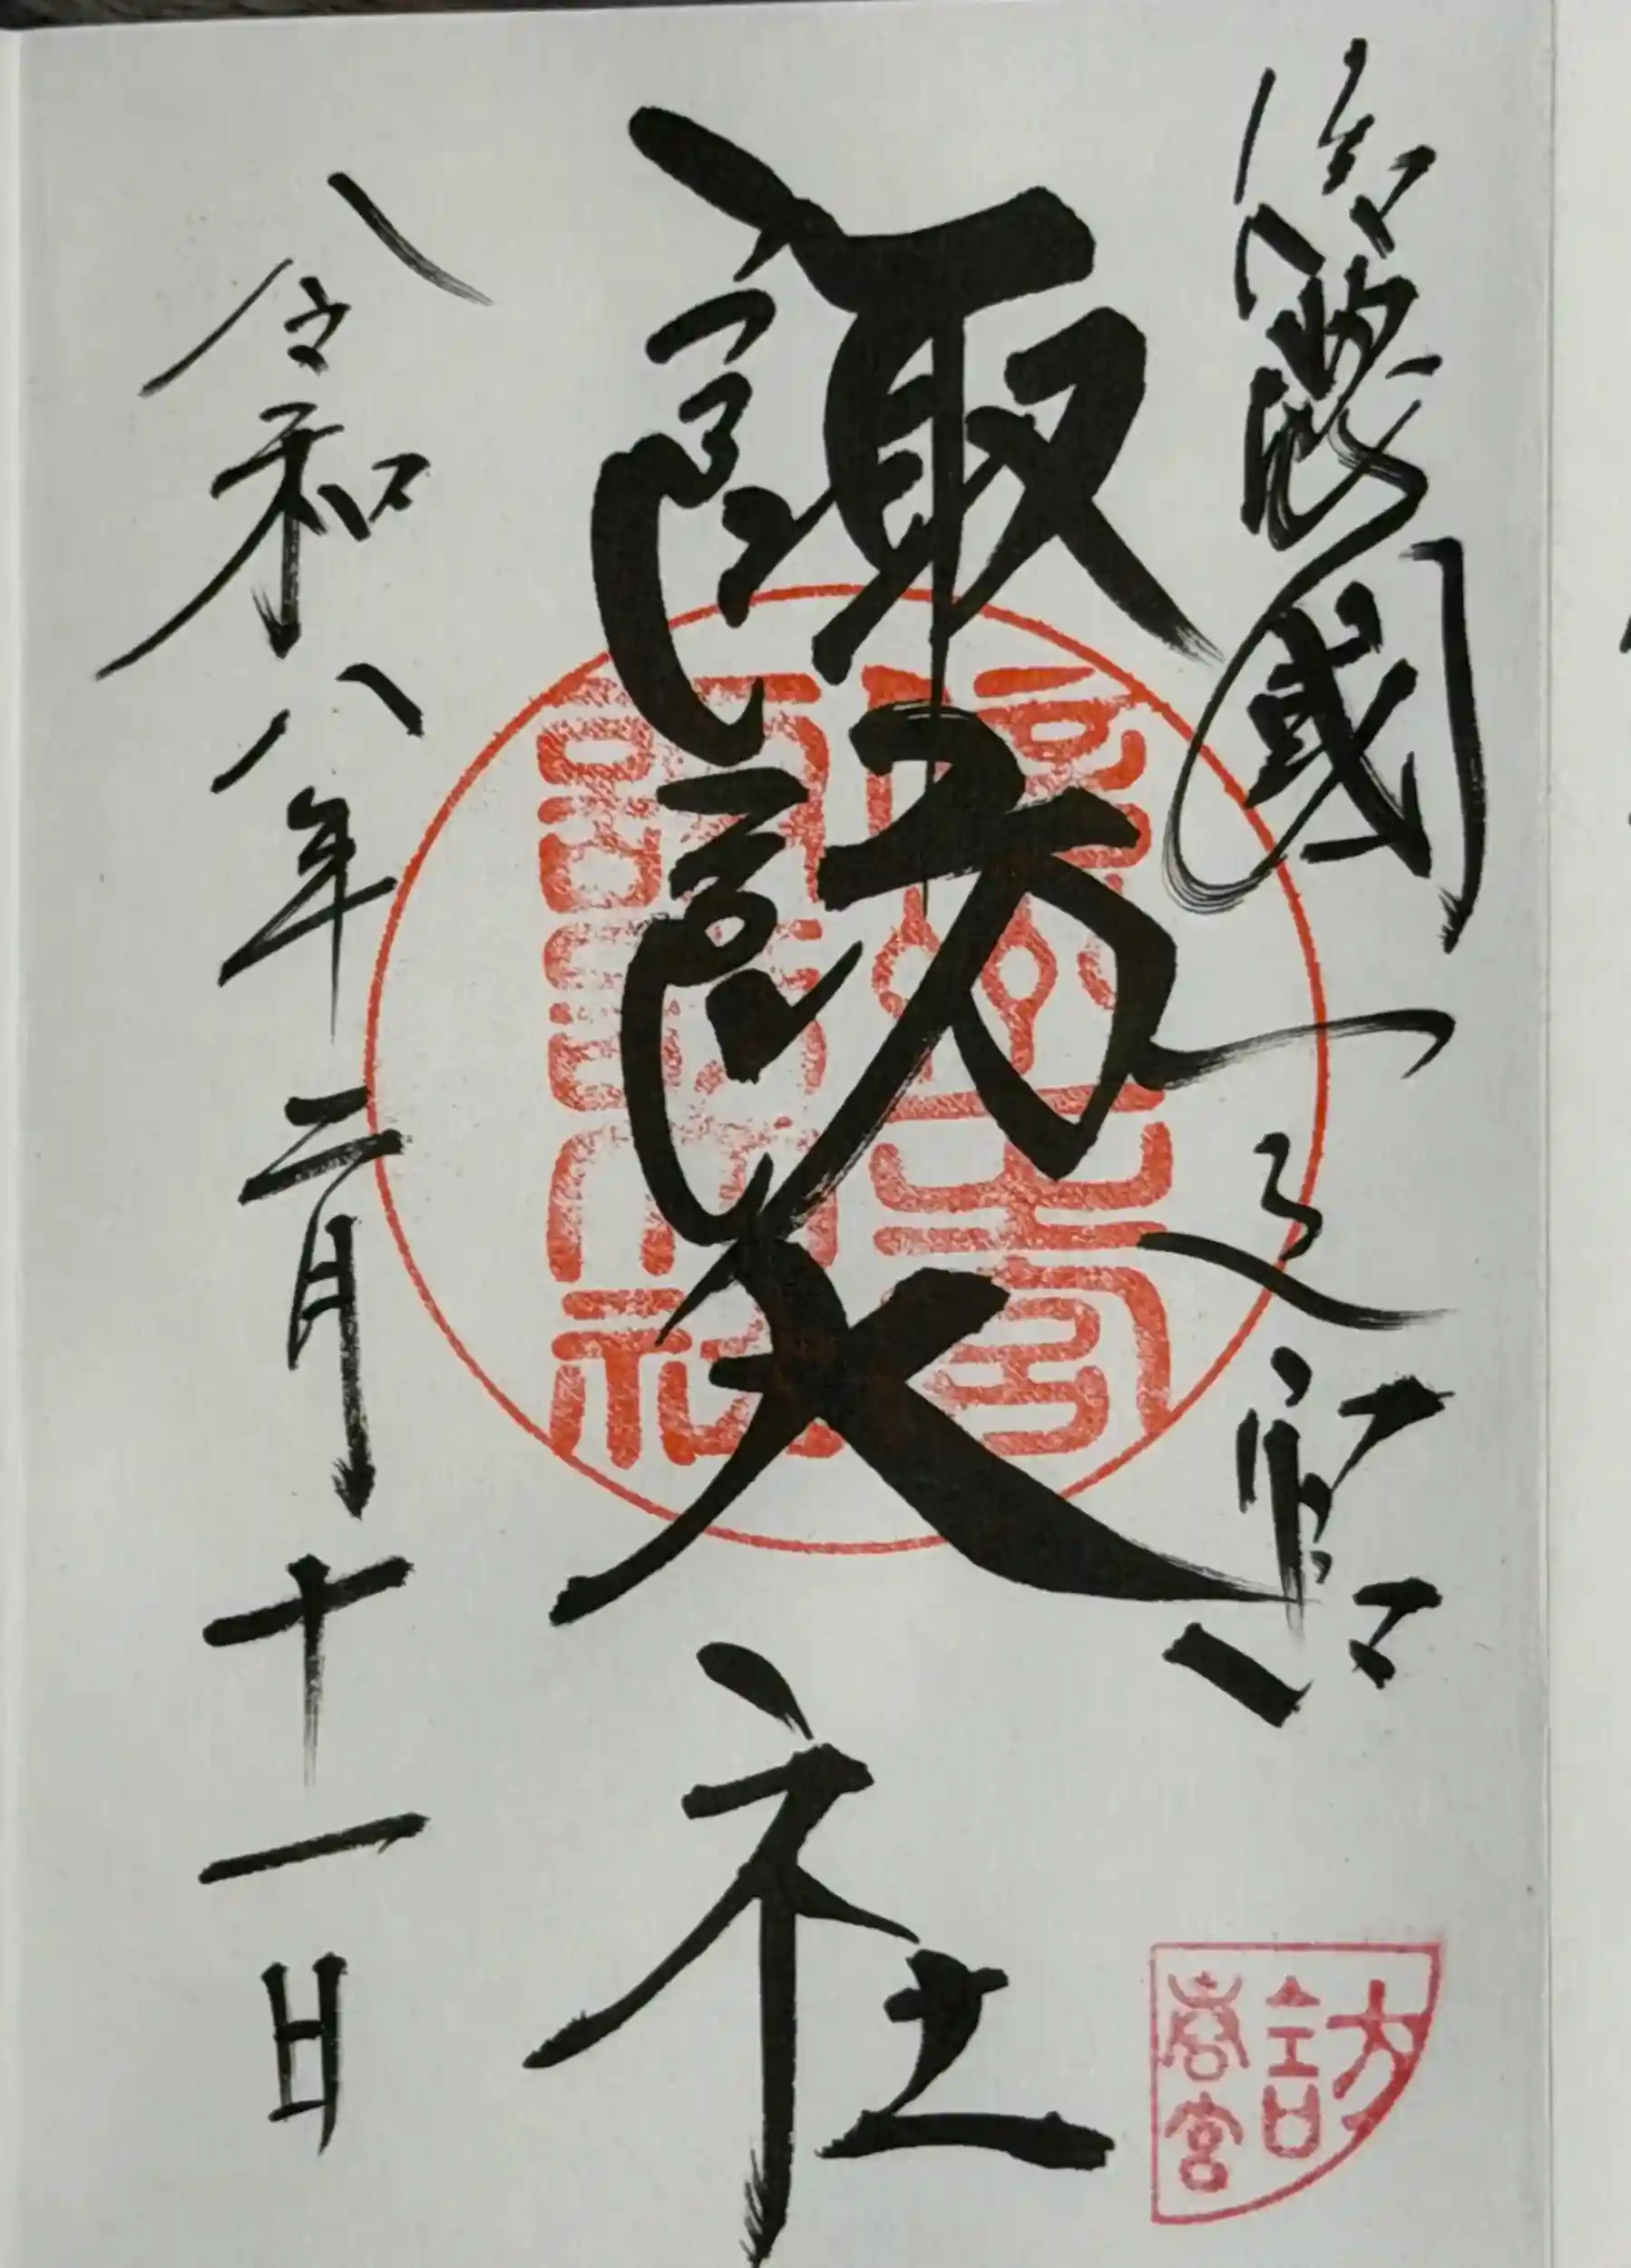 信濃國一之宮
諏訪大社
令和八年二月十一日
訪
春宮